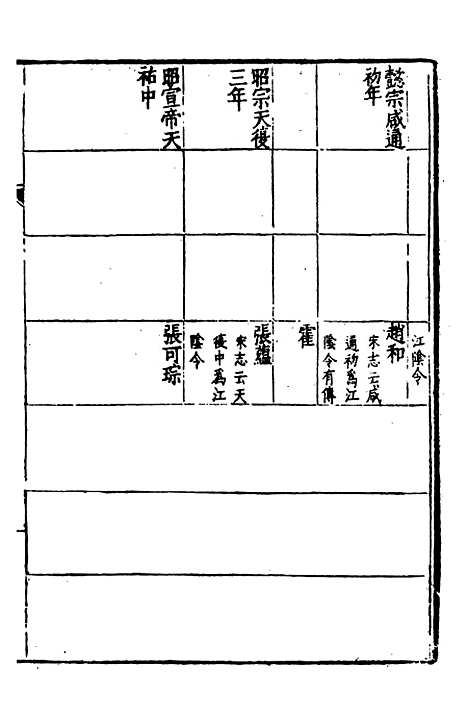 江陰令
懿宗咸通
初年
趙和
宋志云咸
通初爲江
陰令有傳
霍
昭宗天復
三年
張蘊
宋志云天
復中爲江
陰令
昭宣帝天
祐中
張可琮